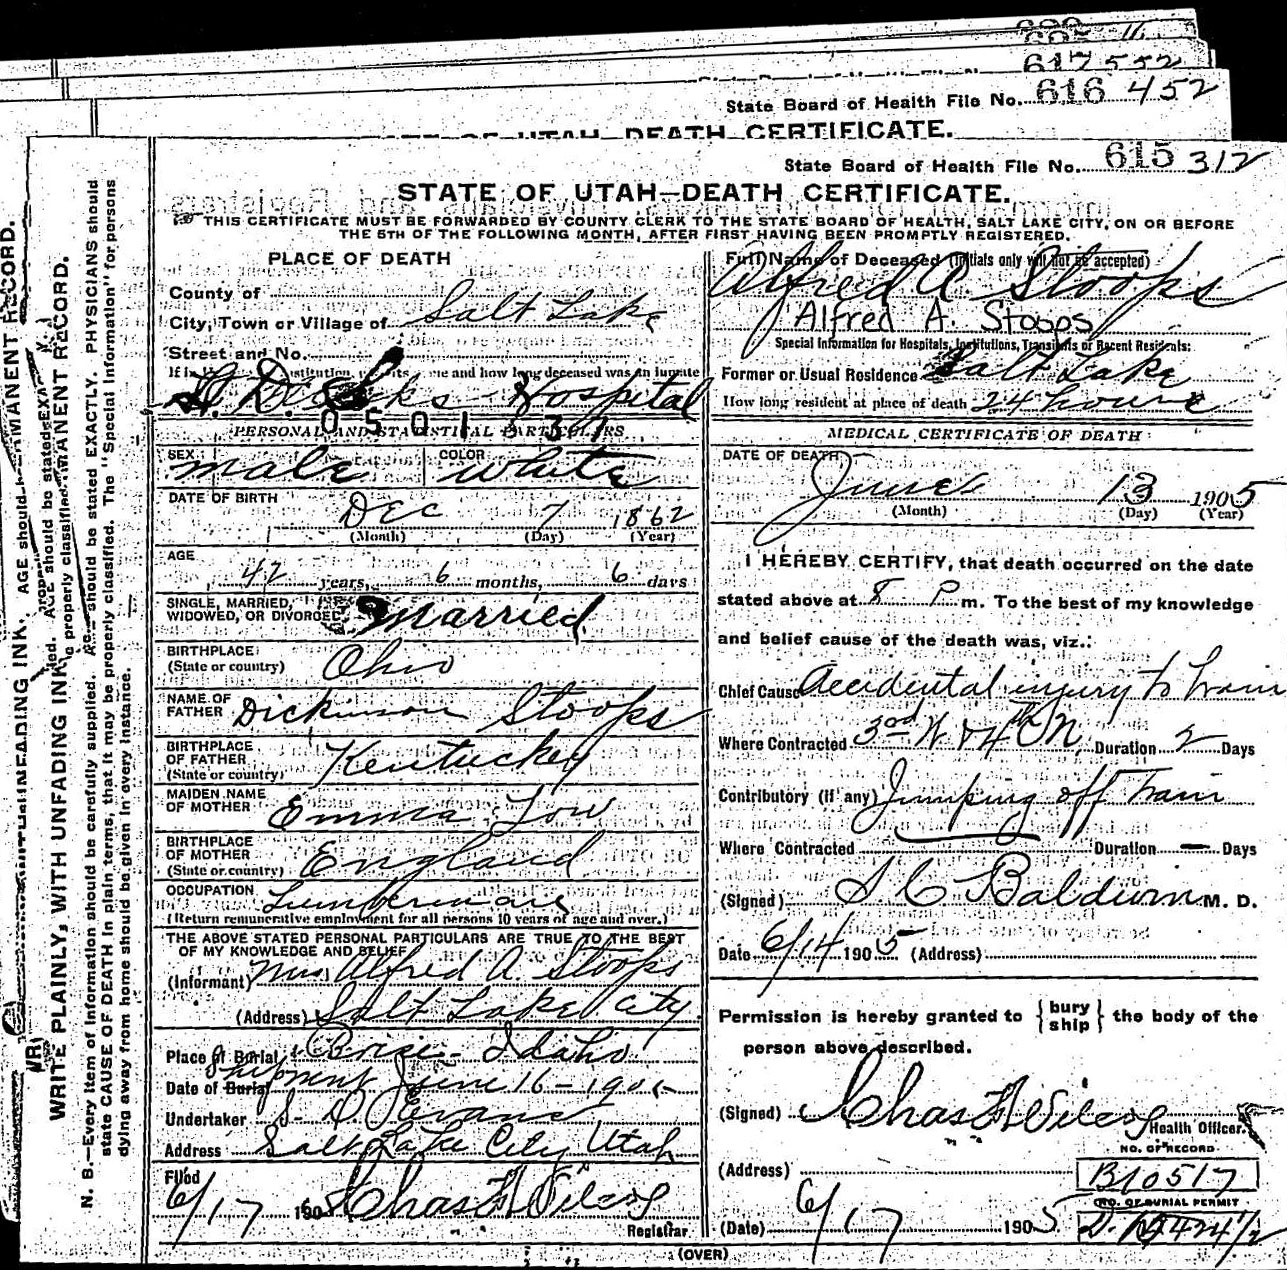 617 552
State Board of Health File No. 616 452
OF UTAH DEATH CERTIFICATE.
State Board of Health File No. 615 312
STATE OF UTAH—DEATH CERTIFICATE.
THIS CERTIFICATE MUST BE FORWARDED BY COUNTY CLERK TO THE STATE BOARD OF HEALTH, SALT LAKE CITY, ON OR BEFORE
THE 5TH OF THE FOLLOWING MONTH, AFTER FIRST HAVING BEEN PROMPTLY REGISTERED.
WRITE PLAINLY, WITH UNFADING INK. PERMANENT RECORD.
N. B.—Every item of information should be carefully supplied. Age should be stated EXACTLY. PHYSICIANS should
state CAUSE OF DEATH in plain terms, that it may be properly classified. The "Special Information" for persons
dying away from home should be given in every instance.
PLACE OF DEATH
County of
City, Town or Village of Salt Lake
Street and No.
Hospital
0501831
PERSONAL AND STATISTICAL PARTICULARS
SEX male COLOR White
DATE OF BIRTH Dec 7 1862
(Month) (Day) (Year)
AGE
42 years, 6 months, 6 days
SINGLE, MARRIED,
WIDOWED, OR DIVORCED Married
BIRTHPLACE
(State or country) Ohio
NAME OF
FATHER Dickinson Stoops
BIRTHPLACE
OF FATHER
(State or country) Kentuckey
MAIDEN NAME
OF MOTHER Emma Low
BIRTHPLACE
OF MOTHER
(State or country) England
OCCUPATION Lumberman
(Return remunerative employment for all persons 10 years of age and over.)
THE ABOVE STATED PERSONAL PARTICULARS ARE TRUE TO THE BEST
OF MY KNOWLEDGE AND BELIEF
(Informant) Mrs Alfred A Stoops
(Address) Salt Lake City
Place of Burial Boise Idaho
Date of Burial Shipment June 16-1905
Undertaker S. D. Evans
Address Salt Lake City Utah
Filed
6/17 1905 Chas F Wilcox
Registrar
Full Name of Deceased (Initials only will not be accepted)
Alfred A. Stoops
Alfred A. Stoops
Special Information for Hospitals, Institutions, Transients or Recent Residents:
Former or Usual Residence Salt Lake
How long resident at place of death 24 hours
MEDICAL CERTIFICATE OF DEATH
DATE OF DEATH
June 13 1905
(Month) (Day) (Year)
I HEREBY CERTIFY, that death occurred on the date
stated above at 8 P m. To the best of my knowledge
and belief cause of the death was, viz.:
Chief Cause Accidental injury to brain
Where Contracted 3rd W & 4th N Duration 2 Days
Contributory (if any) Jumping off train
Where Contracted Duration — Days
(Signed) S C Baldwin M. D.
Date 6/14 1905 (Address)
Permission is hereby granted to {bury ship} the body of the
person above described.
(Signed) Chas F Wilcox
Health Officer.
NO. OF RECORD
(Address) B10517
NO. OF BURIAL PERMIT
(Date) 6/17 1905
(OVER)